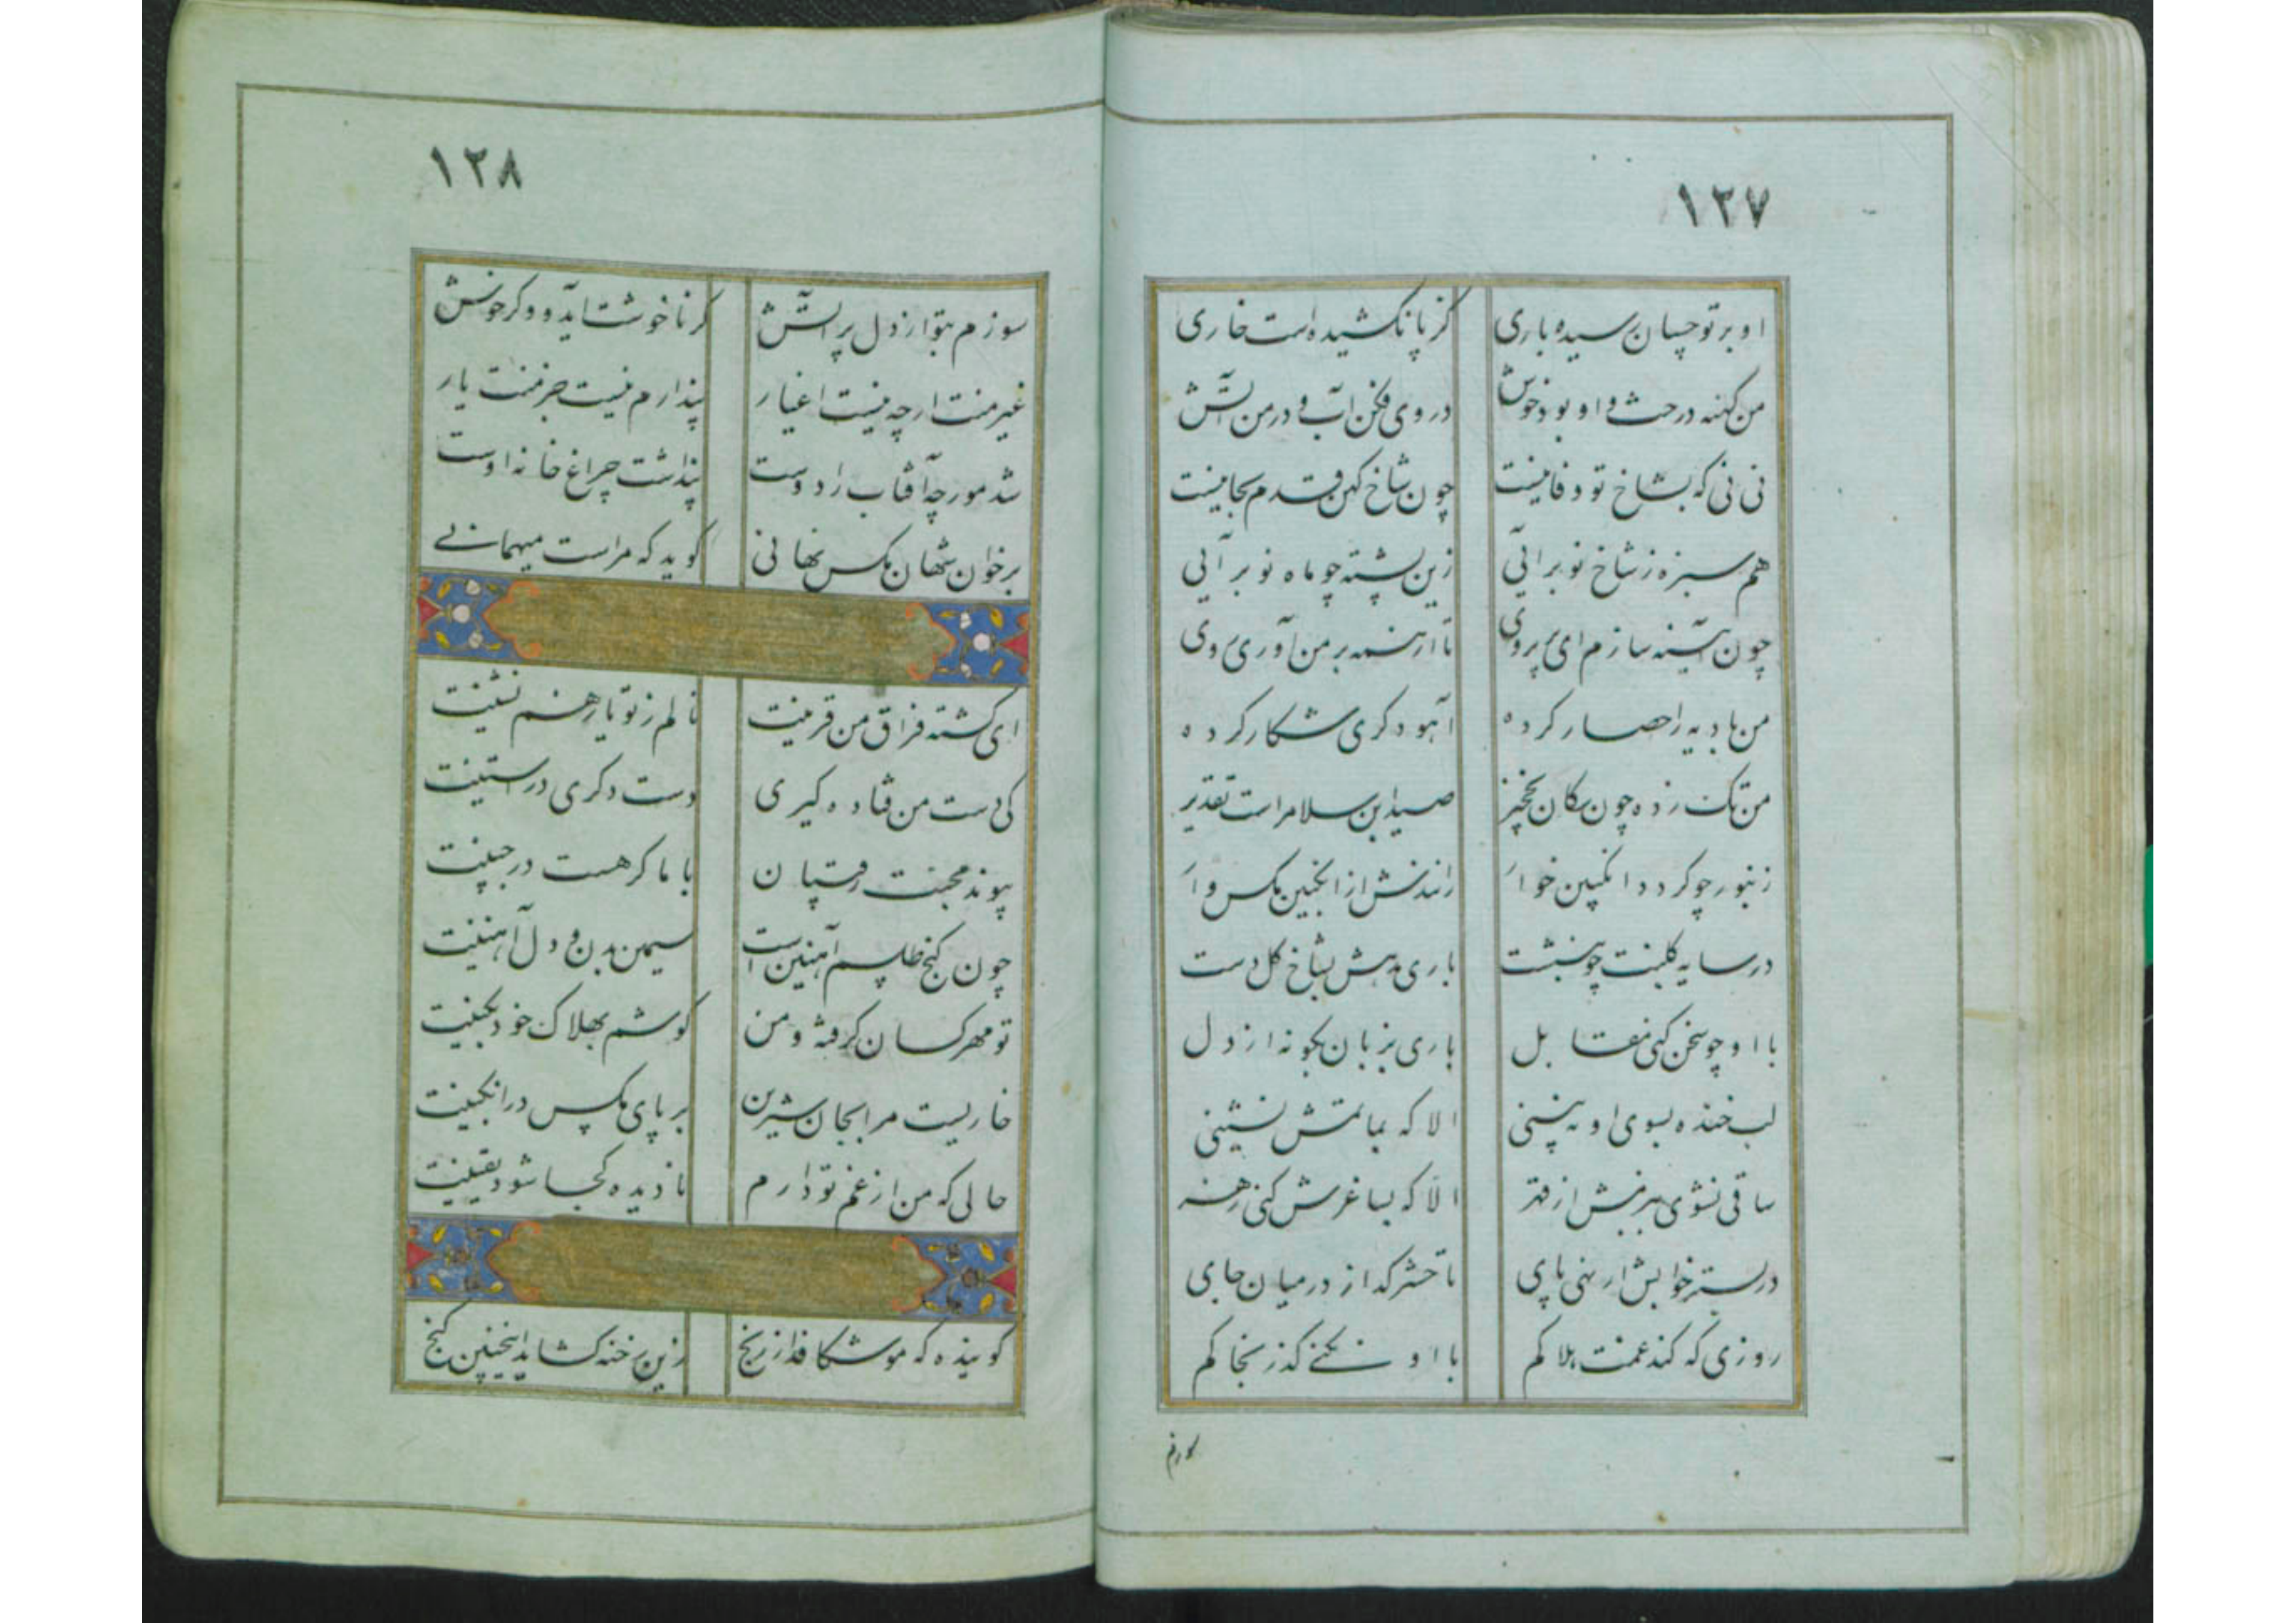 ۱۲۷
او بر تو چسان رسیده باری گر پا نکشیده است خاری
من کهنه درخت و او بود خوش در وی فکن آب و در من آتش
نی نی که بشاخ تو وفا نیست چون شاخ کهن قدم بجا نیست
هم سبزه ز شاخ نو برآئی زین پشته چو ماه نو برآئی
چون آینه سازم ای پری روی تا از همه بر من آوری روی
من بادیه را حصار کرده آهو دگری شکار کرده
من تک زده چون سگان نخچیر صید ابن سلام راست تقدیر
زنبور چو کرد انگبین خوار رانندش از انگبین مگس وار
در سایه گلبنت چو بنشست باری مدهش بشاخ گل دست
با او چو سخن کنی مقابل باری بزبان بگو نه از دل
لب خنده بسوی او نه بینی الا که بماتمش نشینی
ساقی نشوی ببزمش از قهر الا که بساغرش کنی زهر
در بستر خوابش ار نهی پای تا حشر گذار در میان جای
روزی که کند غمت هلاکم با او نکنی گذر بخاکم
سوزم
۱۲۸
سوزم بتو از دل پر آتش گر ناخوشت آید و گر خوش
غیر منت ار چه نیست اغیار پندارم نیست جز منت یار
شد مورچه آفتاب را دوست پنداشت چراغ خانه اوست
بر خوان شهان مگس نهانی گوید که مراست میهمانی
ای گشته فراق من قرینت نالم ز تو یا ز همنشینت
کی دست من فتاده گیری دست دگری در آستینت
پیوند محبت رقیبان با ما گرهست در جبینت
چون گنج طلسم آهنین است سیمین بدن و دل آهنینت
تو مهر کسان گرفته و من کوشم بهلاک خود بکینت
خاریست مرا بجان شیرین بر پای مگس در انگبینت
حالی که من از غم تو دارم نادیده کجا شود یقینت
گوینده که مو شکافد از رنج زین رخنه گشاید اینچنین گنج